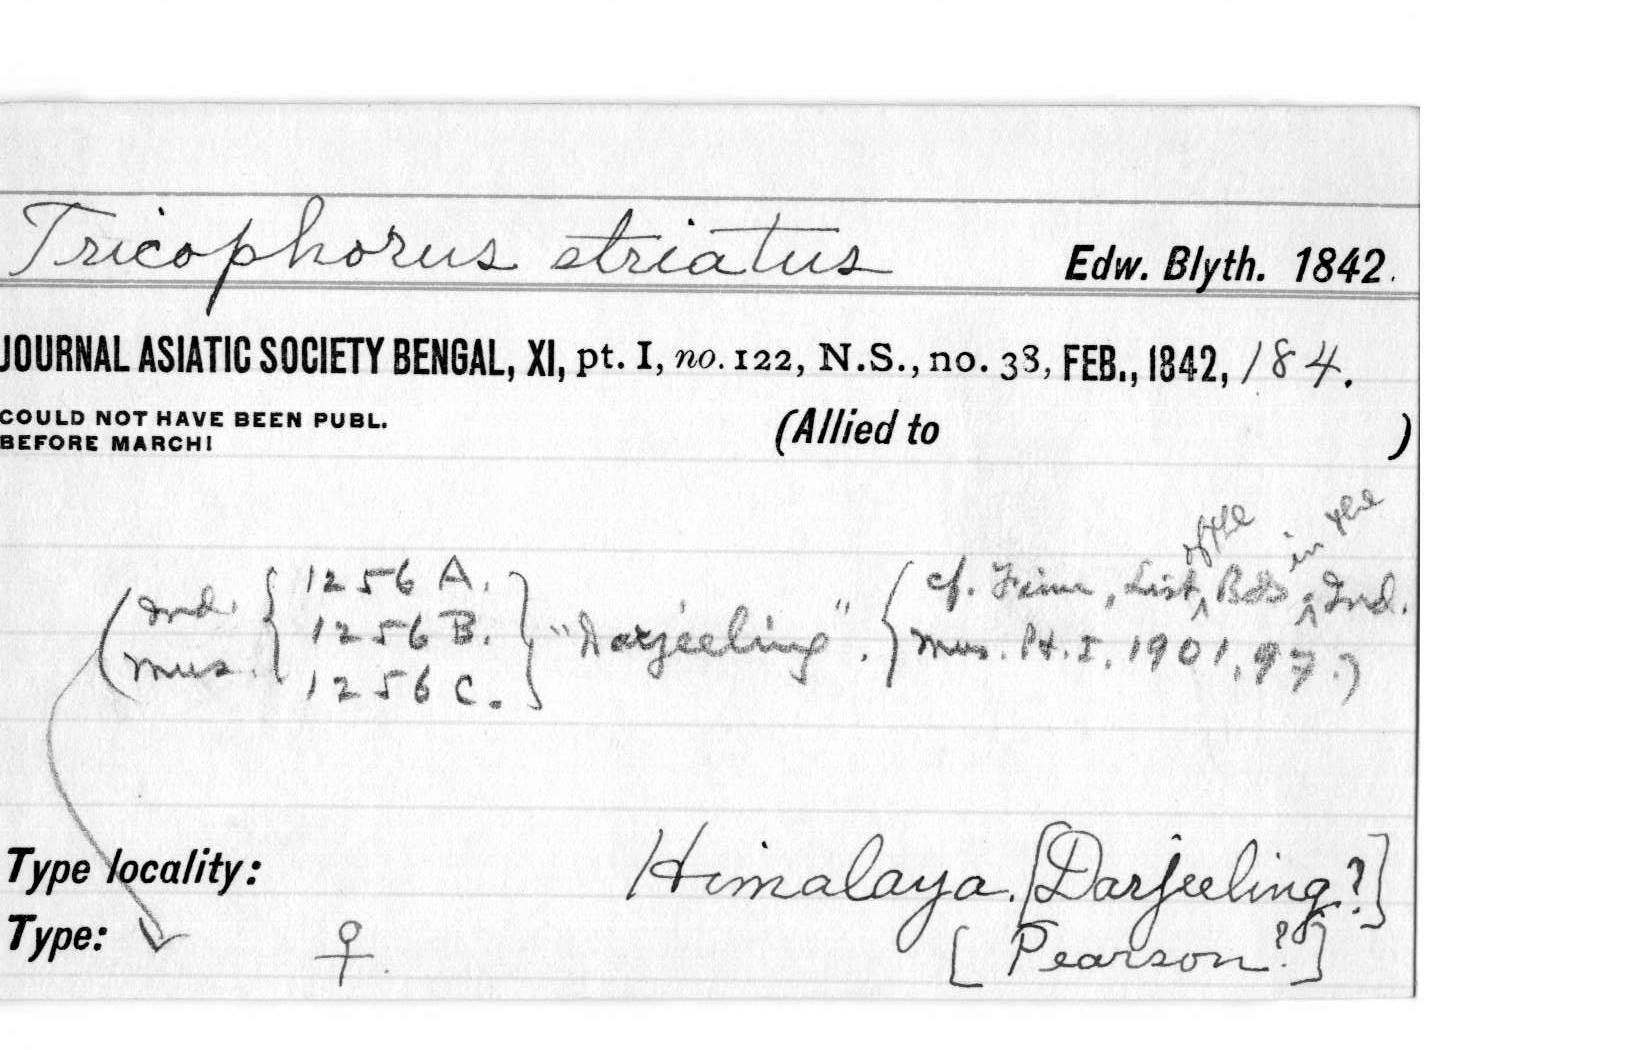 Tricophorus striatus Edw. Blyth. 1842.
JOURNAL ASIATIC SOCIETY BENGAL, XI, pt. I, no. 122, N.S., no. 38, FEB., 1842, 184.
COULD NOT HAVE BEEN PUBL.
BEFORE MARCH!
(Allied to )
of the in the
(Ind. { 1256 A. } { cf. Finn, List ^ Bds ^ Ind.
1256 B. "Darjeeling".
Mus. 1256 C. Mus. Pt. I, 1901, 97.)
Type locality: Himalaya. [Darjeeling?]
Type: ♀. [Pearson?]